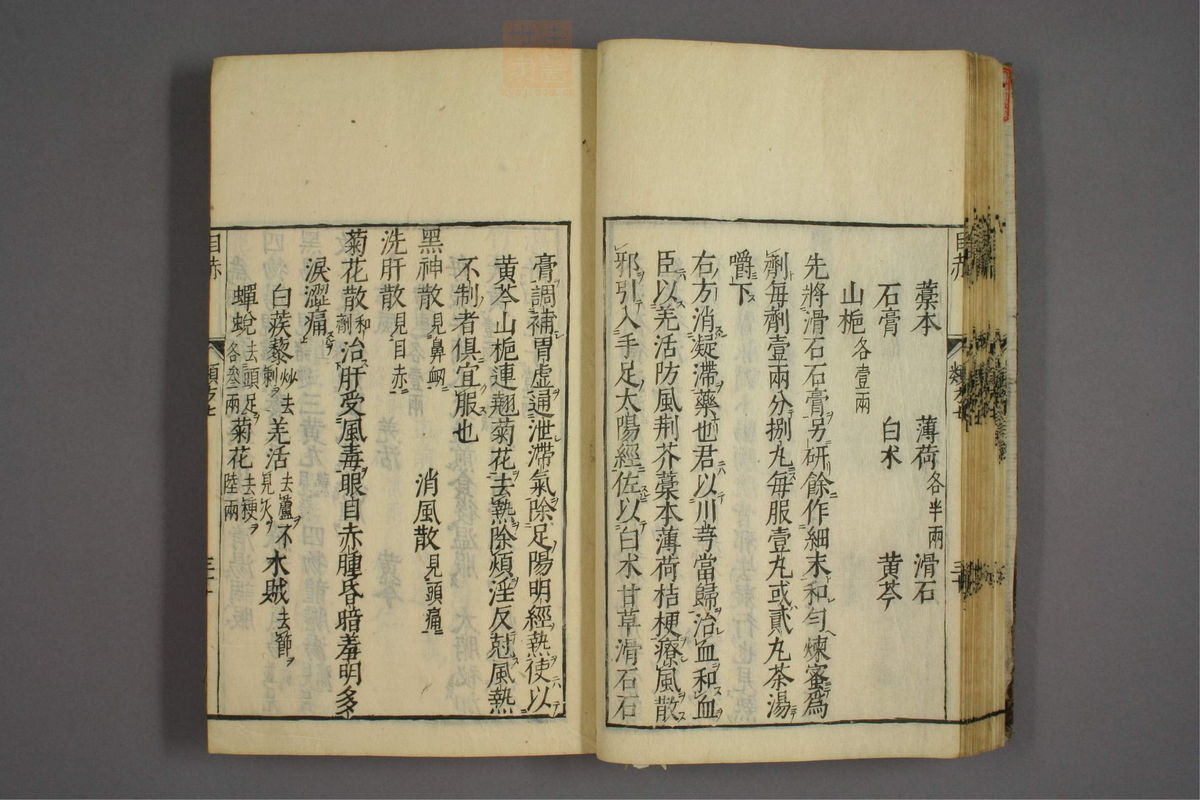 藁本 薄荷各半兩 滑石
石膏 白朮 黃芩
山梔各壹兩
先將滑石石膏另研餘作細末和勻煉蜜爲
劑每劑壹兩分捌丸每服壹丸或貳丸茶湯
嚼下
右方消凝滯藥也君以川芎當歸治血和血
臣以羌活防風荆芥藁本薄荷桔梗療風散
邪引入手足太陽經佐以白朮甘草滑石石
膏調補胃虛通泄滯氣除足陽明經熱使以
黃芩山梔連翹菊花去熱除煩淫反尅風熱
不制者俱宜服也
黑神散見鼻衄 消風散見頭痛
洗肝散見目赤
菊花散和劑治肝受風毒眼目赤腫昏暗羞明多
淚澀痛
白蒺藜炒去刺 羌活去蘆不見火 木賊去節
蟬蛻去頭足各叁兩 菊花去梗陸兩
目赤
類方七